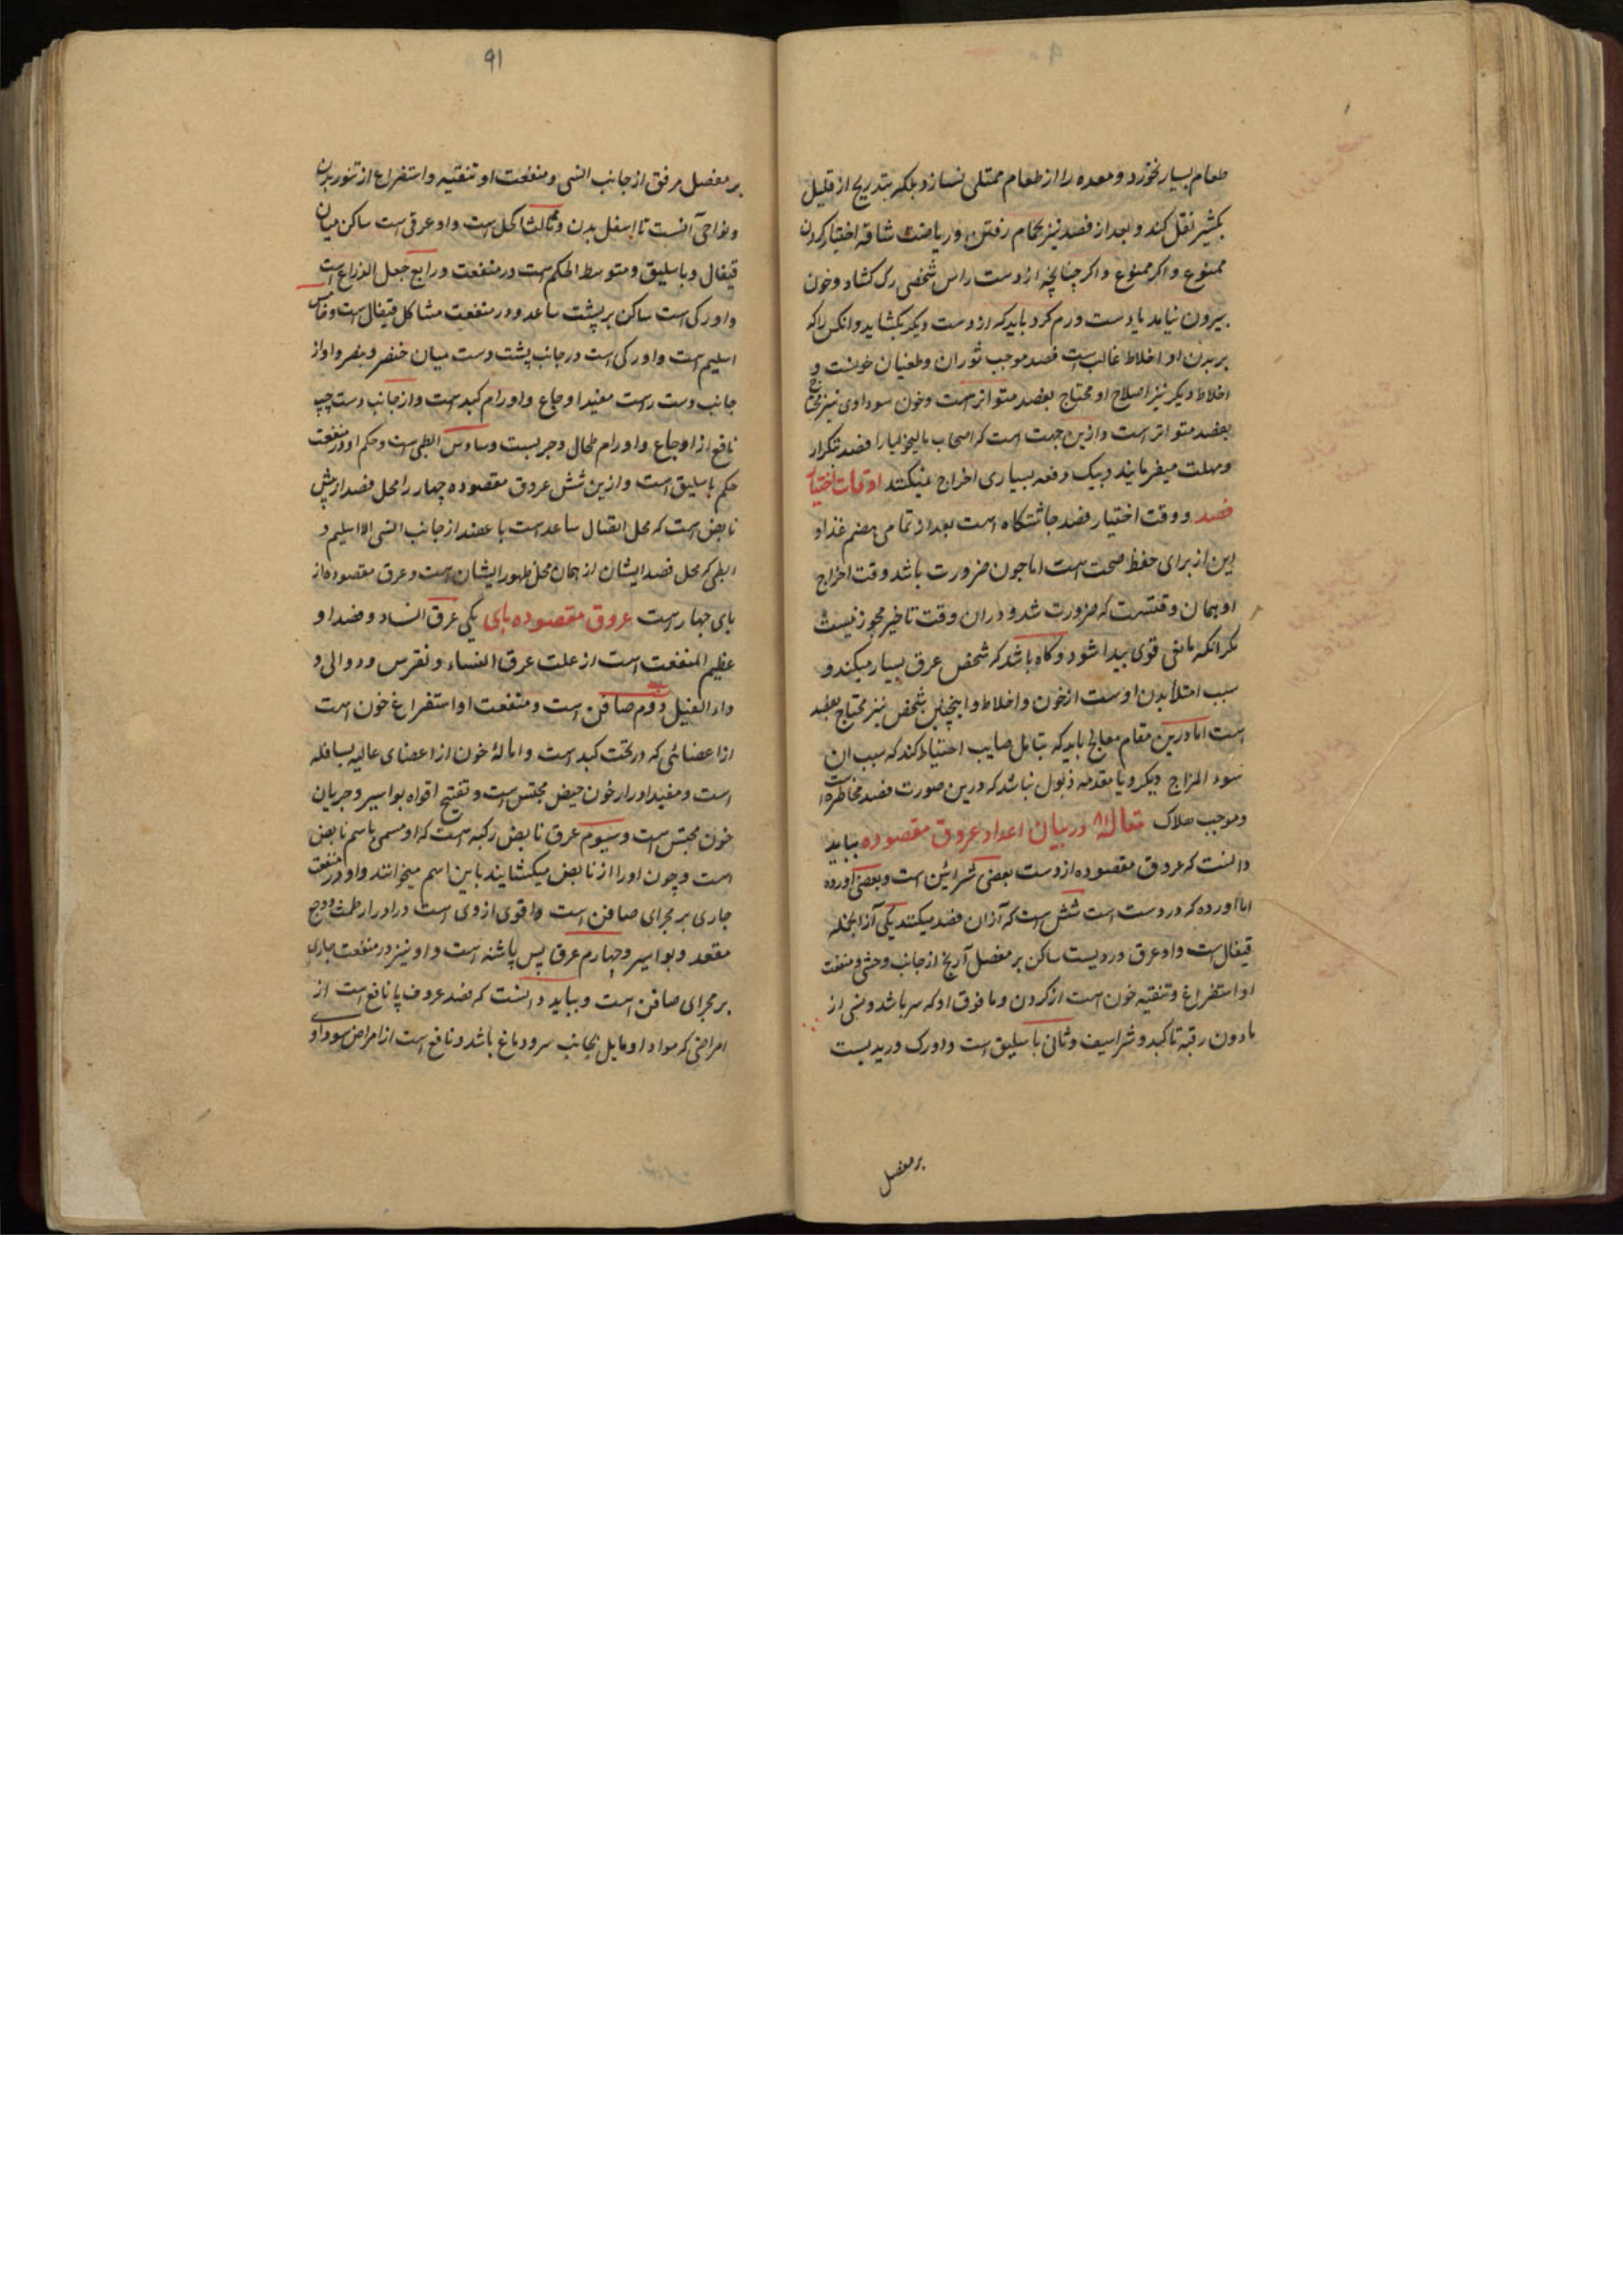 طعام بسیار نخورد و معده را از طعام ممتلی نسازد بلکه بتدریج از قلیل
بکثیر نقل کند و بعد از فصد نیز بحمام رفتن و ریاضت شاقه اختیار کردن
ممنوع و اکر ممنوع و اکر چنانچه از دست راس شخصی رک کشاد و خون
بیرون نیاید یا دست ورم کرد باید که از دست دیکر بکشاید و انکس را که
بر بدن او اخلاط غالب است فصد موجب ثوران و طغیان خونست و
اخلاط دیکر نیز اصلاح او محتاج بفصد متواتر است و خون سوداوی نیز محتاج
بفصد متواتر است و ازین جهت است که اصحاب مالیخولیا را فصد بتکرار
و مهلت میفرمایند و بیک دفعه بسیاری اخراج نمیکنند اوقات اختیار
فصد و وقت اختیار فصد چاشتکاه است بعد از تمامی هضم غذا و
این از برای حفظ صحت است اما چون ضرورت باشد وقت اخراج
او همان وقتست که ضرورت شد و دران وقت تاخیر مجوز نیست
مکر انکه مانعی قوی پیدا شود و کاه باشد که شخص عرق بسیار میکند و
سبب امتلا بدن اوست از خون و اخلاط و اینچنین شخص نیز محتاج بفصد
است اما درین مقام معالج باید که بتامل صایب احتیاط کند که سبب ان
سوء المزاج دیکر و یا مقدمه ذبول نباشد که درین صورت فصد مخاطره است
و موجب هلاک مقاله ۸ در بیان اعداد عروق مقصوده بباید
دانست که عروق مقصوده از دست بعضی شرائین است و بعضی اورده
اما اورده که در دست است شش است که آزان فصد میکنند یکی آزانجمله
قیفال است و او عرق وردیست ساکن بر مفصل آرنج از جانب وحشی و منفعت
او استفراغ و تنقیه خون است از کردن و ما فوق او که سر باشد و نبی از
مادون رقبه تا کبد و شراسیف و ثانی باسلیق است و او رک وریدیست
بر مفصل
۹۱
بر مفصل مرفق از جانب انسی و منفعت او تنقیه و استفراغ از تنور بدن
و نواحی آنست تا اسفل بدن و ثالث اکحل است و او عرقی است ساکن میان
قیفال و باسلیق و متوسط الحکم است در منفعت و رابع حبل الذراع است
و او رکی است ساکن بر پشت ساعد و در منفعت مشاکل قیفال است و خامس
اسلیم است و او رکی است در جانب پشت دست میان خنصر و بنصر و او از
جانب دست راست مفید اوجاع و اورام کبد است و از جانب دست چپ
نافع از اوجاع و اورام طحال و جربست و سادس ابطی است و حکم او در منفعت
حکم باسلیق است و ازین شش عروق مقصوده چهار را محل فصد از پیش
نابض است که محل اتصال ساعد است با عضد از جانب انسی الا اسلیم و
ابطی که محل فصد ایشان از همان محل ظهور ایشان است و عرق مقصوده از
پای چهار است عروق مقصوده پای یکی عرق النسا و فصد او
عظیم المنفعت است از علت عرق النساء و نقرس و دوالی و
داء الفیل دوم صافن است و منفعت او استفراغ خون است
از اعضائی که در تحت کبد است و امالهٔ خون از اعضای عالیه بسافله
است و مفید ادرار خون حیض محتبس است و تفتیح افواه بواسیر و جریان
خون محتبس است و سیوم عرق نابض رکبه است که او مسمی باسم نابض
است و چون او را از نابض میکشایند باین اسم میخوانند و او در منفعت
جاری بر مجرای صافن است و اقوی از وی است در ادرار طمث و وجع
مقعد و بواسیر و چهارم عرق پس پاشنه است و او نیز در منفعت جاری
بر مجرای صافن است و بباید دانست که فصد عروق پا نافع است از
امراضی که مواد او مایل بجانب سر و دماغ باشد و نافع است از امراض سوداوی